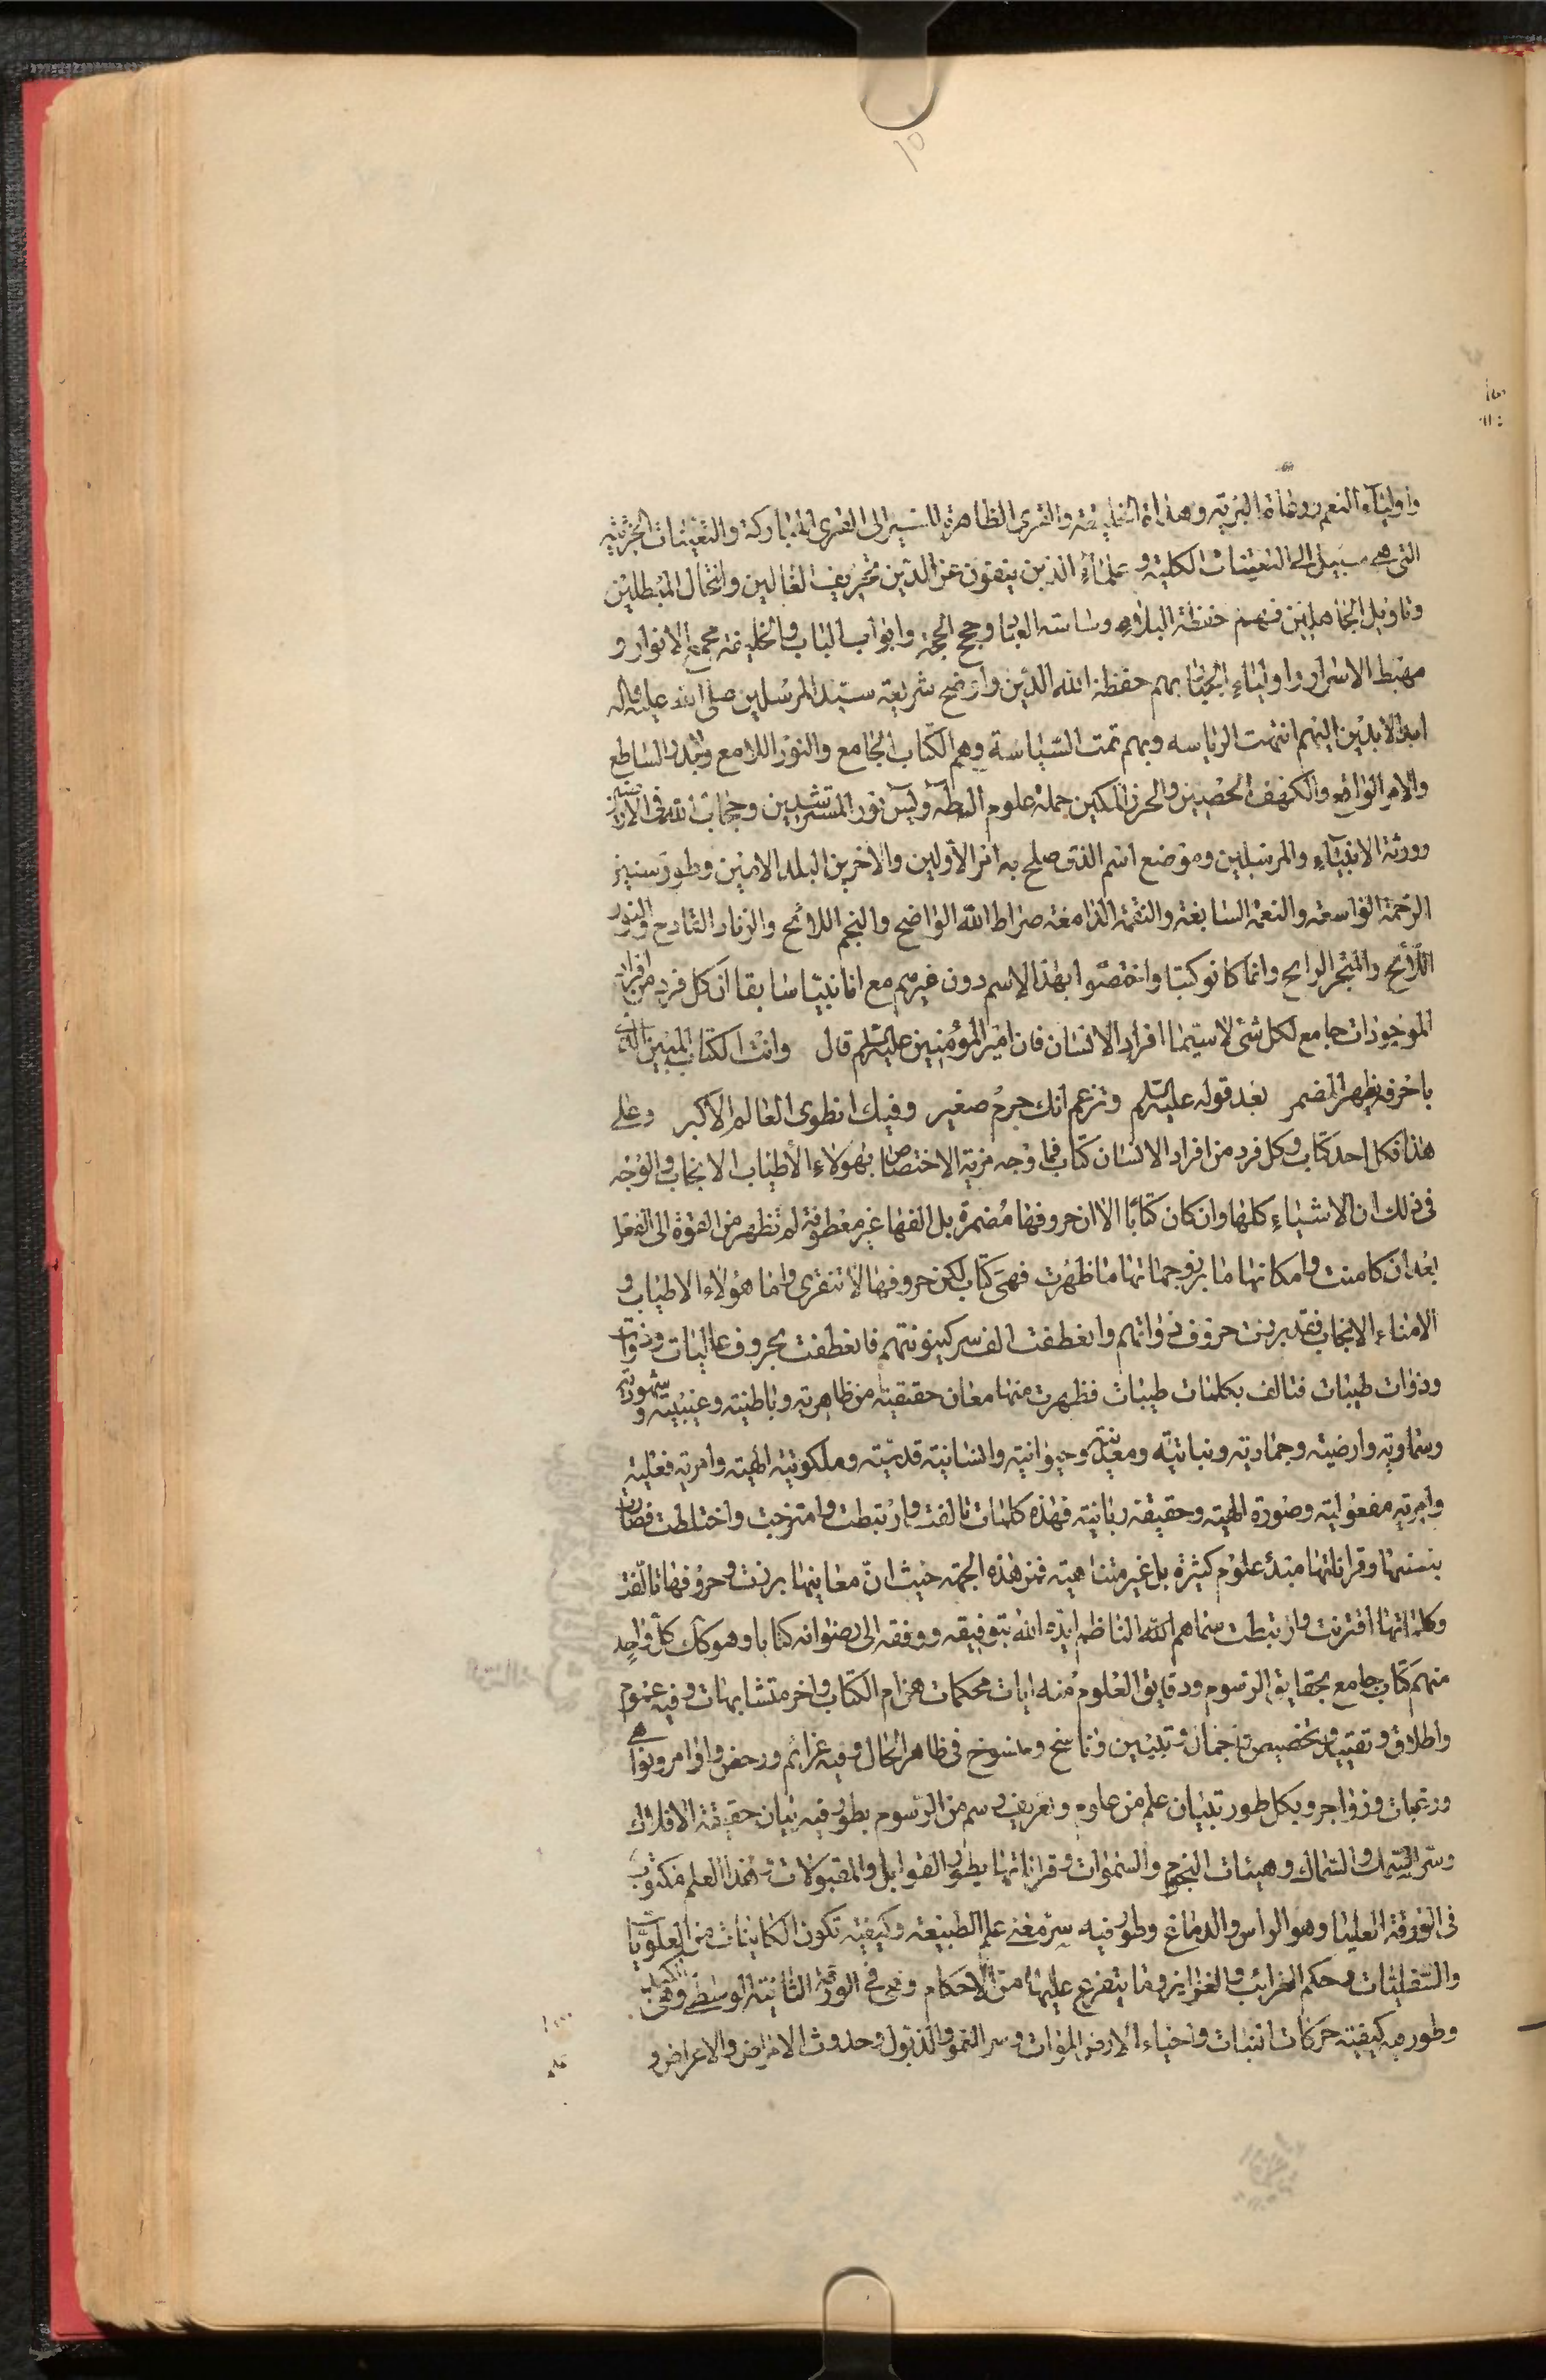 واولياء النعم ورعاة البرية وهداة الخليقة والقرى الظاهرة للسير الى القرى المباركة والتعينات الجزئية
التى هى سبيل الى التعينات الكلية وعلماء الذين ينفون عن الدين تحريف الغالين وانتحال المبطلين
وتاويل الجاهلين فهم حفظة البلاد وساسة العباد وحجج الحجة وابواب الباب والخليفة مجمع الانوار و
مهبط الاسرار واولياء الجبار بهم حفظ الله الدين واوضح شريعة سيد المرسلين صلى الله عليه واله
ابد الابدين اليهم انتهت الرياسه وبهم تمت السياسة وهم الكتاب الجامع والنور اللامع والبدر الساطع
والامر الواضح والكهف الحصين والحرز المكين حملة علوم الطه ويس نور المسترشدين وحجاب الله فى الارضين
وورثة الانبياء والمرسلين وموضع اسم الذى صلح به امر الاولين والاخرين البلد الامين وطور سنين
الرحمة الواسعة والنعمة السابغة والنقمة الدامغة صراط الله الواضح والنجم اللائح والزناد القادح والنور
اللائح والمتجر الرابح وانما كانوا كتبا واختصوا بهذا الاسم دون غيرهم مع انا نبيا سابقا ان كل فرد من افراد
الموجودات جامع لكل شئ لا سيما افراد الانسان فان امير المؤمنين عليه السلام قال وانت الكتاب المبين الذى
باحرفه يظهر المضمر بعد قوله عليه السلام وتزعم انك جرم صغير وفيك انطوى العالم الاكبر وعلى
هذا فكل احد كتاب وكل فرد من افراد الانسان كتاب فما وجه مزية الاختصاص بهؤلاء الأطياب الانجاب والوجه
فى ذلك ان الاشياء كلها وان كان كتابا الا ان حروفها مضمرة بل الفها غير معطوفة لم تظهر من القوة الى الفعل
بعد ان كامنت وامكانها ما برز وجماتها ما ظهرت فهى كتاب لكن حروفها لا تنقرى واما هؤلاء الاطياب و
الامناء الانجاب فقد برزت حروف ذواتهم وانعطفت الف سر كينونتهم فانعطفت بحروف عاليات وذوات
وذوات طيبات فتالف بكلمات طيبات فظهرت منها معان حقيقية من ظاهرية وباطنية وغيبية وشهودية
وسماوية وارضية وجمادية ونباتية ومعدنية وحيوانية وانسانية قدسية وملكوتية الهية وامرية فعلية
وامرية مفعولية وصورة الهية وحقيقة ربانية فهذه كلمات تالفت وارتبطت وامتزجت واختلطت فصارت
بنسبتها وقراناتها مبدء علوم كثيرة بل غير متناهية فمن هذه الجهة حيث ان معانيها برزت وحروفها تالفت
وكلماتها اقترنت وارتبطت سماهم الله الناظم ايده الله بتوفيقه ووفقه الى رضوانه كتابا وهو كك كل واحد
منهم كتاب جامع بحقايق الرسوم ودقايق العلوم منه ايات محكمات هن ام الكتاب واخر متشابهات وفيه عموم
واطلاق وتقييد وتخصيص واجمال وتبيين وناسخ ومنسوخ فى ظاهر الحال وفيه عزائم ورخص واوامر ونواهى
وزواجر وبكل طور تبيان علم من علوم وتعريف رسم من الرسوم بطور فيه بيان حقيقة الافلاك
وسر السمك والسماك وهيئات النجوم والسموات وقراناتها بطور القوابل والمقبولات وهذا العلم مكتوب
فى الورقة العليا وهو الراس والدماغ وطور فيه سر معنى علم الطبيعة وكيفية تكون الكاينات من العلويات
والسفليات وحكم الغرائب والغرايز وما يتفرع عليها من الاحكام وهى فى الورقة الثانية الوسطى وهى
وطور فيه كيفية حركات النبات واحياء الارض الموات وسر النمو والذبول وحدوث الامراض والاعراض و